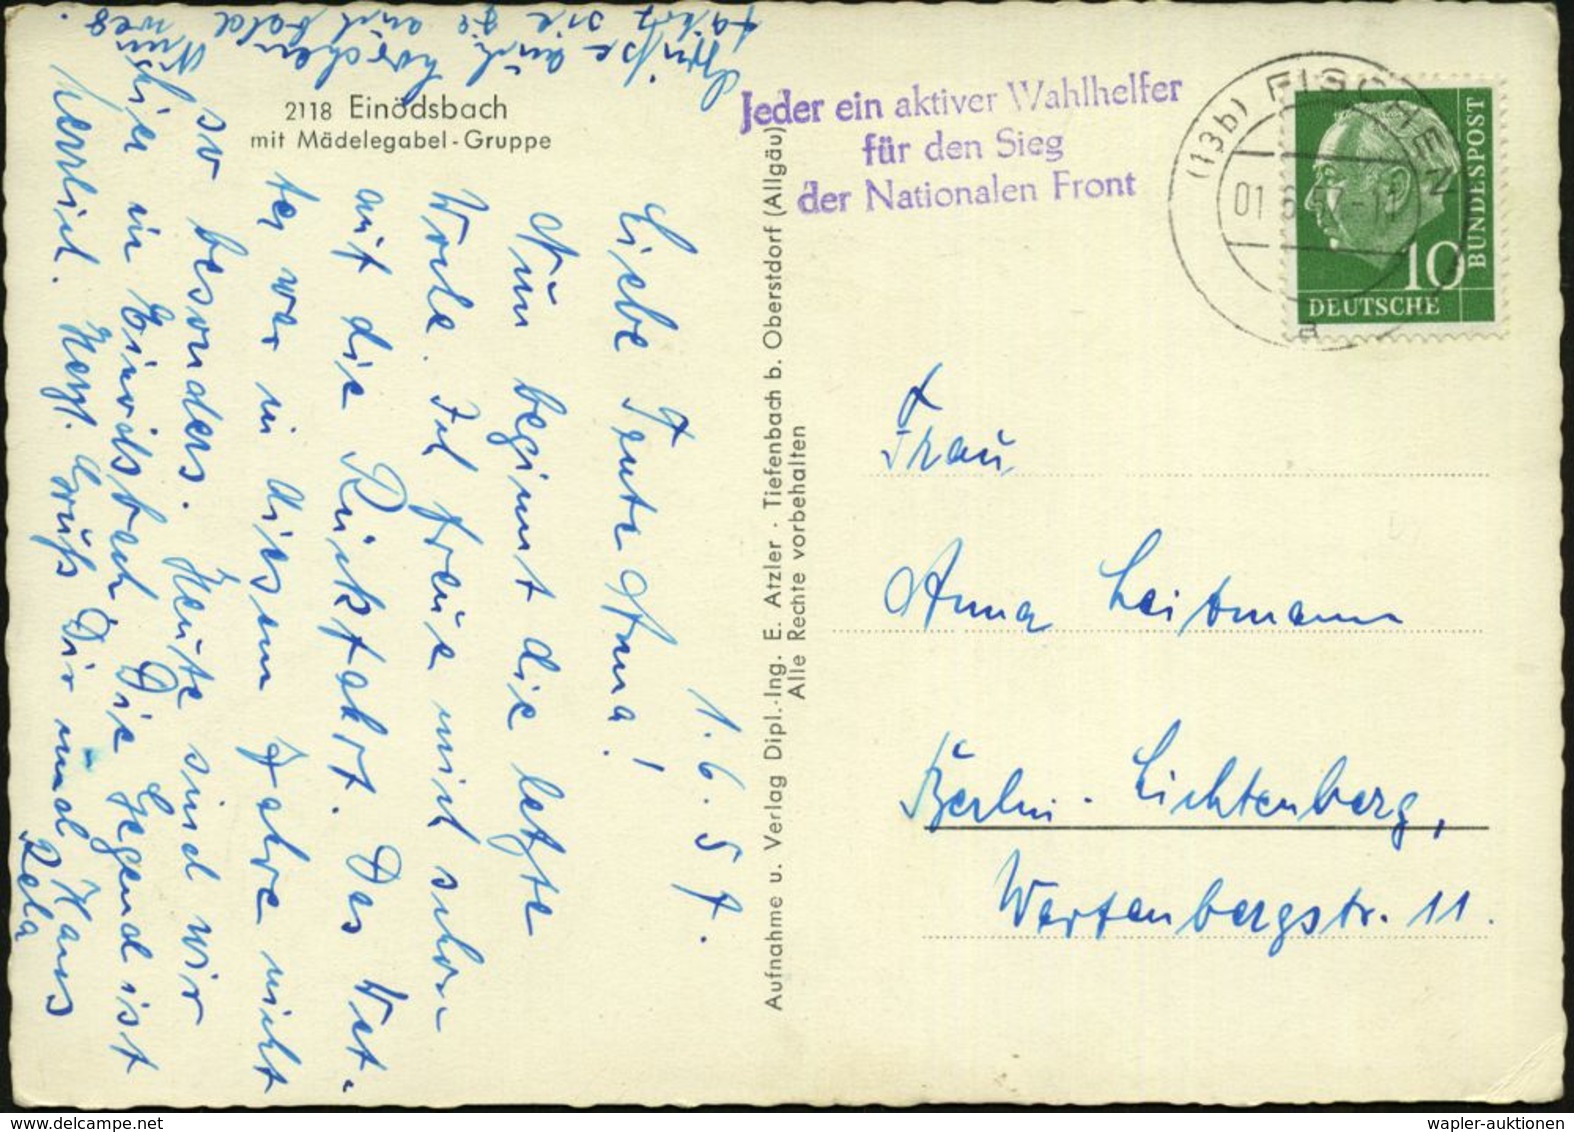 2118 Einödsbach
mit Mädelegabel-Gruppe
Jeder ein aktiver Wahlhelfer
für den Sieg
der Nationalen Front
(13b) FISCHEN
01.6.57-11
a
10
DEUTSCHE
BUNDESPOST
Aufnahme u. Verlag Dipl.-Ing. E. Atzler · Tiefenbach b. Oberstdorf (Allgäu)
Alle Rechte vorbehalten
1. 6. 57.
Liebe Tante Anna!
Nun beginnt die letzte
Woche. Ich freue mich schon
auf die Rückfahrt. Das Wet-
ter war in diesem Jahre nicht
so besonders. Heute sind wir
hier in Einödsbach. Die Gegend ist
herrlich. Herzl. Grüße Dir und Hans
Rela
Grüße auch
Frau
Anna Leitmann
Berlin-Lichtenberg,
Wartenbergstr. 11.
wapler-auktionen